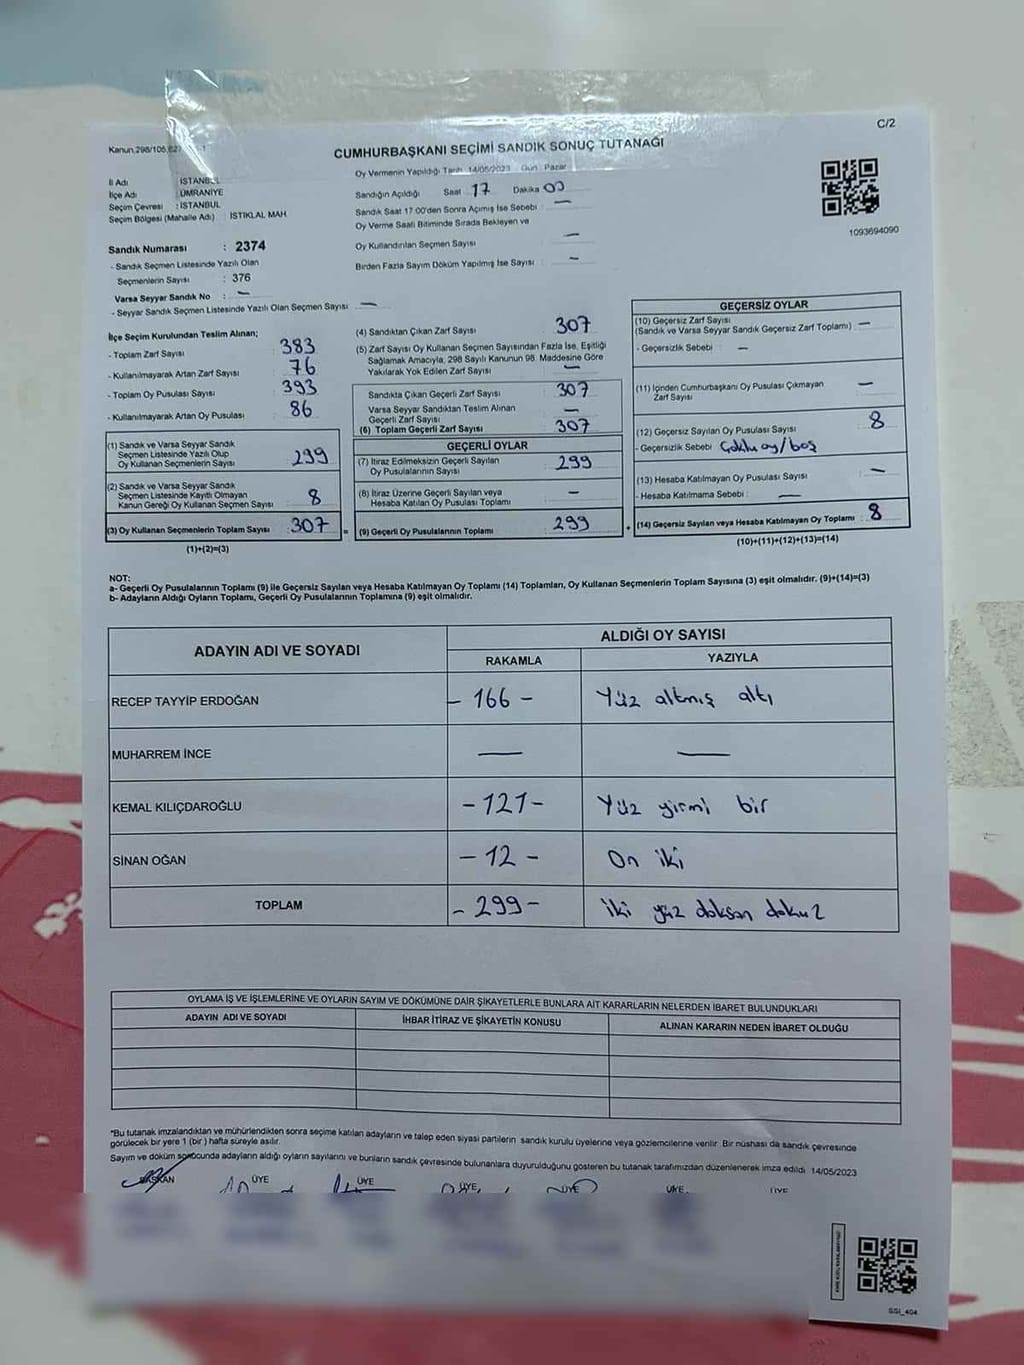 C/2
Kanun.298/105,
CUMHURBAŞKANI SEÇİMİ SANDIK SONUÇ TUTANAĞI
Oy Vermenin Yapıldığı Tarih 14/05/2023 Gün Pazar
İl Adı : İSTANBUL
İlçe Adı : ÜMRANİYE
Seçim Çevresi : İSTANBUL
Seçim Bölgesi (Mahalle Adı) İSTİKLAL MAH.
Sandığın Açıldığı Saat 17 Dakika 00
Sandık Saat 17:00'den Sonra Açımış İse Sebebi : —
Oy Verme Saati Bitiminde Sırada Bekleyen ve
Oy Kullandırılan Seçmen Sayısı —
Birden Fazla Sayım Döküm Yapılmış İse Sayısı : —
1093694090
Sandık Numarası : 2374
- Sandık Seçmen Listesinde Yazılı Olan
Seçmenlerin Sayısı : 376
Varsa Seyyar Sandık No : —
- Seyyar Sandık Seçmen Listesinde Yazılı Olan Seçmen Sayısı : —
İlçe Seçim Kurulundan Teslim Alınan;
- Toplam Zarf Sayısı 383
- Kullanılmayarak Artan Zarf Sayısı 76
- Toplam Oy Pusulası Sayısı 393
- Kullanılmayarak Artan Oy Pusulası 86
(1) Sandık ve Varsa Seyyar Sandık
Seçmen Listesinde Yazılı Olup
Oy Kullanan Seçmenlerin Sayısı 299
(2) Sandık ve Varsa Seyyar Sandık
Seçmen Listesinde Kayıtlı Olmayan
Kanun Gereği Oy Kullanan Seçmen Sayısı 8
(3) Oy Kullanan Seçmenlerin Toplam Sayısı 307 =
(1)+(2)=(3)
(4) Sandıktan Çıkan Zarf Sayısı 307
(5) Zarf Sayısı Oy Kullanan Seçmen Sayısından Fazla İse, Eşitliği
Sağlamak Amacıyla, 298 Sayılı Kanunun 98. Maddesine Göre
Yakılarak Yok Edilen Zarf Sayısı —
Sandıkta Çıkan Geçerli Zarf Sayısı 307
Varsa Seyyar Sandıktan Teslim Alınan
Geçerli Zarf Sayısı —
(6) Toplam Geçerli Zarf Sayısı 307
GEÇERLİ OYLAR
(7) İtiraz Edilmeksizin Geçerli Sayılan
Oy Pusulalarının Sayısı 299
(8) İtiraz Üzerine Geçerli Sayılan veya
Hesaba Katılan Oy Pusulası Toplamı —
(9) Geçerli Oy Pusulalarının Toplamı 299 +
GEÇERSİZ OYLAR
(10) Geçersiz Zarf Sayısı
(Sandık ve Varsa Seyyar Sandık Geçersiz Zarf Toplamı) —
- Geçersizlik Sebebi : —
(11) İçinden Cumhurbaşkanı Oy Pusulası Çıkmayan
Zarf Sayısı —
(12) Geçersiz Sayılan Oy Pusulası Sayısı 8
- Geçersizlik Sebebi Çoklu oy/boş
(13) Hesaba Katılmayan Oy Pusulası Sayısı —
- Hesaba Katılmama Sebebi : —
(14) Geçersiz Sayılan veya Hesaba Katılmayan Oy Toplamı 8
(10)+(11)+(12)+(13)=(14)
NOT:
a- Geçerli Oy Pusulalarının Toplamı (9) ile Geçersiz Sayılan veya Hesaba Katılmayan Oy Toplamı (14) Toplamları, Oy Kullanan Seçmenlerin Toplam Sayısına (3) eşit olmalıdır. (9)+(14)=(3)
b- Adayların Aldığı Oyların Toplamı, Geçerli Oy Pusulalarının Toplamına (9) eşit olmalıdır.
ADAYIN ADI VE SOYADI ALDIĞI OY SAYISI
RAKAMLA YAZIYLA
RECEP TAYYİP ERDOĞAN - 166 - Yüz altmış altı
MUHARREM İNCE — —
KEMAL KILIÇDAROĞLU - 121 - Yüz yirmi bir
SİNAN OĞAN - 12 - On iki
TOPLAM - 299 - İki yüz doksan dokuz
OYLAMA İŞ VE İŞLEMLERİNE VE OYLARIN SAYIM VE DÖKÜMÜNE DAİR ŞİKAYETLERLE BUNLARA AİT KARARLARIN NELERDEN İBARET BULUNDUKLARI
ADAYIN ADI VE SOYADI İHBAR İTİRAZ VE ŞİKAYETİN KONUSU ALINAN KARARIN NEDEN İBARET OLDUĞU
*Bu tutanak imzalandıktan ve mühürlendikten sonra seçime katılan adayların ve talep eden siyasi partilerin sandık kurulu üyelerine veya gözlemcilerine verilir. Bir nüshası da sandık çevresinde
görülecek bir yere 1 (bir ) hafta süreyle asılır.
Sayım ve döküm sonucunda adayların aldığı oyların sayılarını ve bunların sandık çevresinde bulunanlara duyurulduğunu gösteren bu tutanak tarafımızdan düzenlenerek imza edildi. 14/05/2023
BAŞKAN ÜYE ÜYE ÜYE ÜYE ÜYE ÜYE
GSI_404